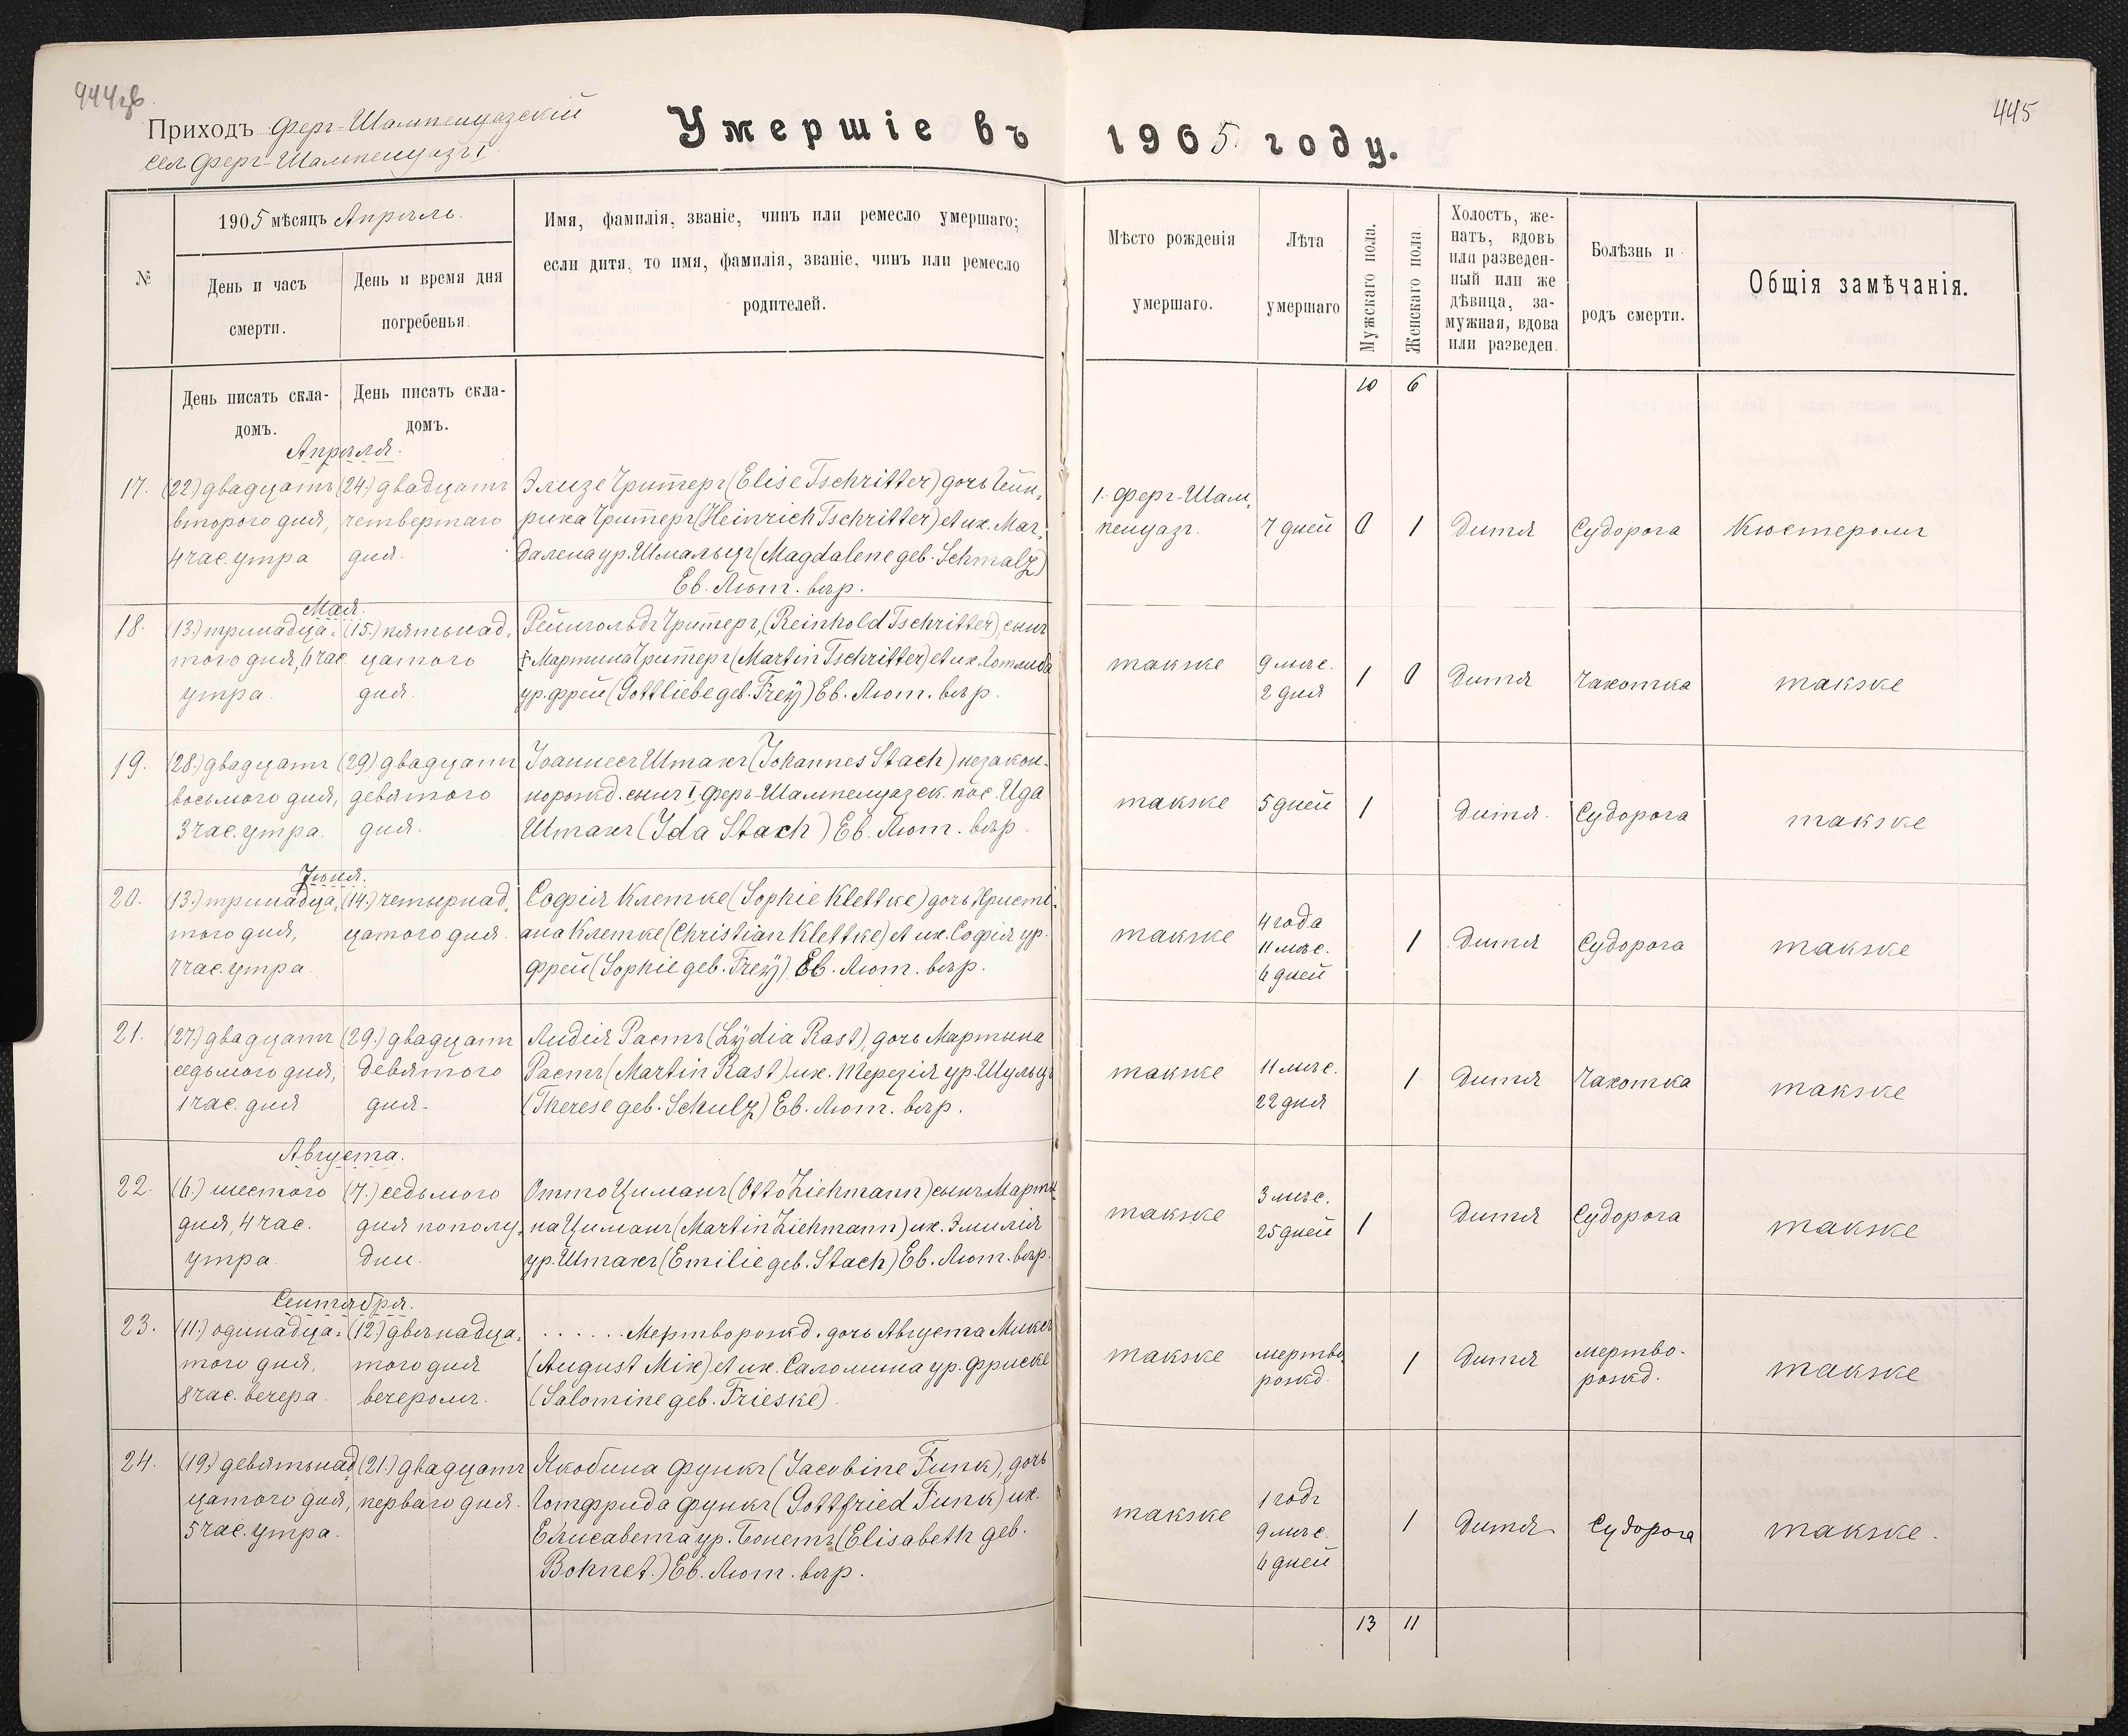 444 об.
445
Приходъ Ферг-Шампенуазскій
сел. Ферг-Шампенуазъ I
Умершіе въ 1905 году.
№
1905 мѣсяцъ Апрѣль.
День и часъ
смерти.
День и время дня
погребенья.
Имя, фамилія, званіе, чинъ или ремесло умершаго;
если дитя, то имя, фамилія, званіе, чинъ или ремесло
родителей.
Мѣсто рожденія
умершаго.
Лѣта
умершаго
Мужскаго пола.
Женскаго пола
Холостъ, же-
натъ, вдовъ
или разведен-
ный или же
дѣвица, за-
мужная, вдова
или разведен.
Болѣзнь и
родъ смерти.
Общія замѣчанія.
День писать скла-
домъ.
День писать скла-
домъ.
10 6
Апрѣля.
17.
(22) двадцать
второго дня,
4 час. утра
(24.) двадцать
четвертаго
дня.
Элизе Чритеръ (Elise Tschritter) дочь Гейн-
риха Чритеръ (Heinrich Tschritter) и ж. Маг-
далена ур. Шмальцъ (Magdalene geb. Schmalz)
Ев. Лют. вѣр.
1. Ферг-Шам-
пенуазъ.
7 дней
0 1
Дитя
Судорога
Кюстеромъ
Мая.
18.
(13.) тринадца-
того дня, 6 час
утра.
(15.) пятьнад-
цатого
дня.
Рейнгольдъ Чритеръ, (Reinhold Tschritter), сынъ
Мартина Чритеръ (Martin Tschritter) и ж. Готлиба
ур. Фрей (Gottliebe geb. Freÿ) Ев. Лют. вѣр.
также
9 мѣс.
2 дня
1 0
Дитя
Чахотка
также
19.
(28.) двадцать
восьмого дня,
3 час. утра.
(29) двадцать
девятого
дня.
Іоаннесъ Штахъ (Johannes Stach) незакон-
норожд. сынъ I. Феръ-Шампенуазск. пос. Ида
Штахъ (Ida Stach) Ев. Лют. вѣр.
также
5 дней
1
Дитя.
Судорога
также
Іюня.
20.
(13.) тринадца-
того дня,
7 час. утра.
(14.) четырнад-
цатого дня.
Софія Клетке (Sophie Klettke) дочь Христі-
ана Клетке (Christian Klettke) и ж. Софія ур.
Фрей (Sophie geb. Freÿ) Ев. Лют. вѣр.
также
4 года
11 мѣс.
6 дней
1
Дитя
Судорога
также
21.
(27.) двадцать
седьмого дня,
1 час. дня
(29.) двадцать
девятого
дня.
Лидія Растъ (Lÿdia Rast), дочь Мартына
Растъ (Martin Rast) и ж. Терезія ур. Шульцъ
(Therese geb. Schulz) Ев. Лют. вѣр.
также
11 мѣс.
22 дня
1
Дитя
Чахотка
также
Августа.
22.
(6.) шестого
дня, 4 час.
утра
(7.) седьмого
дня пополу-
дни.
Отто Циманъ (Otto Ziehmann) сынъ Марти-
на Циманъ (Martin Ziehmann) и ж. Эмилія
ур. Штахъ (Emilie geb. Stach) Ев. Лют. вѣр.
также
3 мѣс.
25 дней
1
Дитя
Судорога
также
Сентября.
23.
(11.) одинадца-
того дня,
8 час. вечера.
(12) двѣнадца-
того дня
вечеромъ.
...... Мертворожд. дочь Августа Миксъ
(August Mix) и ж. Саломина ур. Фриске
(Salomine geb. Frieske)
также
мертво-
рожд.
1
Дитя
мертво-
рожд.
также
24.
(19.) девятьнад-
цатого дня,
5 час. утра.
(21.) двадцать
перваго дня.
Якобина Функъ (Jacobine Funk), дочь
Готфрида Функъ (Gottfried Funk) и ж.
Елисавета ур. Бонетъ (Elisabeth geb.
Bohnet.) Ев. Лют. вѣр.
также
1 годъ
9 мѣс.
6 дней
1
Дитя
Судорога
также.
13 11